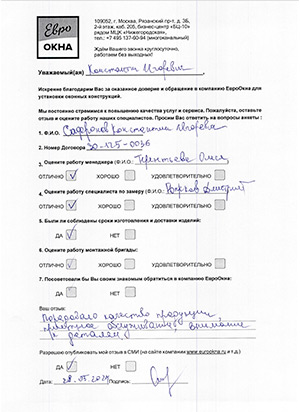 Евро
ОКНА
109052, г. Москва, Рязанский пр-т, д. 3Б,
2-ой этаж, каб. 205, бизнес-центр «БЦ-10»
рядом МЦК «Нижегородская».
тел.: +7 495 137-60-94 (многоканальный)
Ждём Вашего звонка круглосуточно,
работаем без выходных!
Уважаемый(ая) Константин Игоревич
Искренне благодарим Вас за оказанное доверие и обращение в компанию ЕвроОкна для
установки оконных конструкций.
Мы постоянно стремимся к повышению качества услуг и сервиса. Пожалуйста, оставьте
отзыв о работе наших специалистов. Просим Вас ответить на вопросы анкеты :
1. Ф.И.О. Сафронов Константин Игоревич
2. Номер Договора 30-125-0036
3. Оцените работу менеджера (Ф.И.О.: Терентьева Ольга
ОТЛИЧНО ХОРОШО УДОВЛЕТВОРИТЕЛЬНО
4. Оцените работу специалиста по замеру (Ф.И.О.) Дмитрий
ОТЛИЧНО ХОРОШО УДОВЛЕТВОРИТЕЛЬНО
5. Были ли соблюдены сроки изготовления и доставки изделий:
ДА НЕТ
6. Оцените работу монтажной бригады:
ОТЛИЧНО ХОРОШО УДОВЛЕТВОРИТЕЛЬНО
7. Посоветовали бы Вы своим знакомым обратиться в компанию ЕвроОкна?
ДА НЕТ
Ваш отзыв:
Порадовало качество продукции,
приятное обслуживание, внимание
к деталям.
Разрешаю опубликовать мой отзыв в СМИ (на сайте компании www.eurookna.ru и т.д.)
ДА НЕТ
Дата: 28.05.2024 Подпись